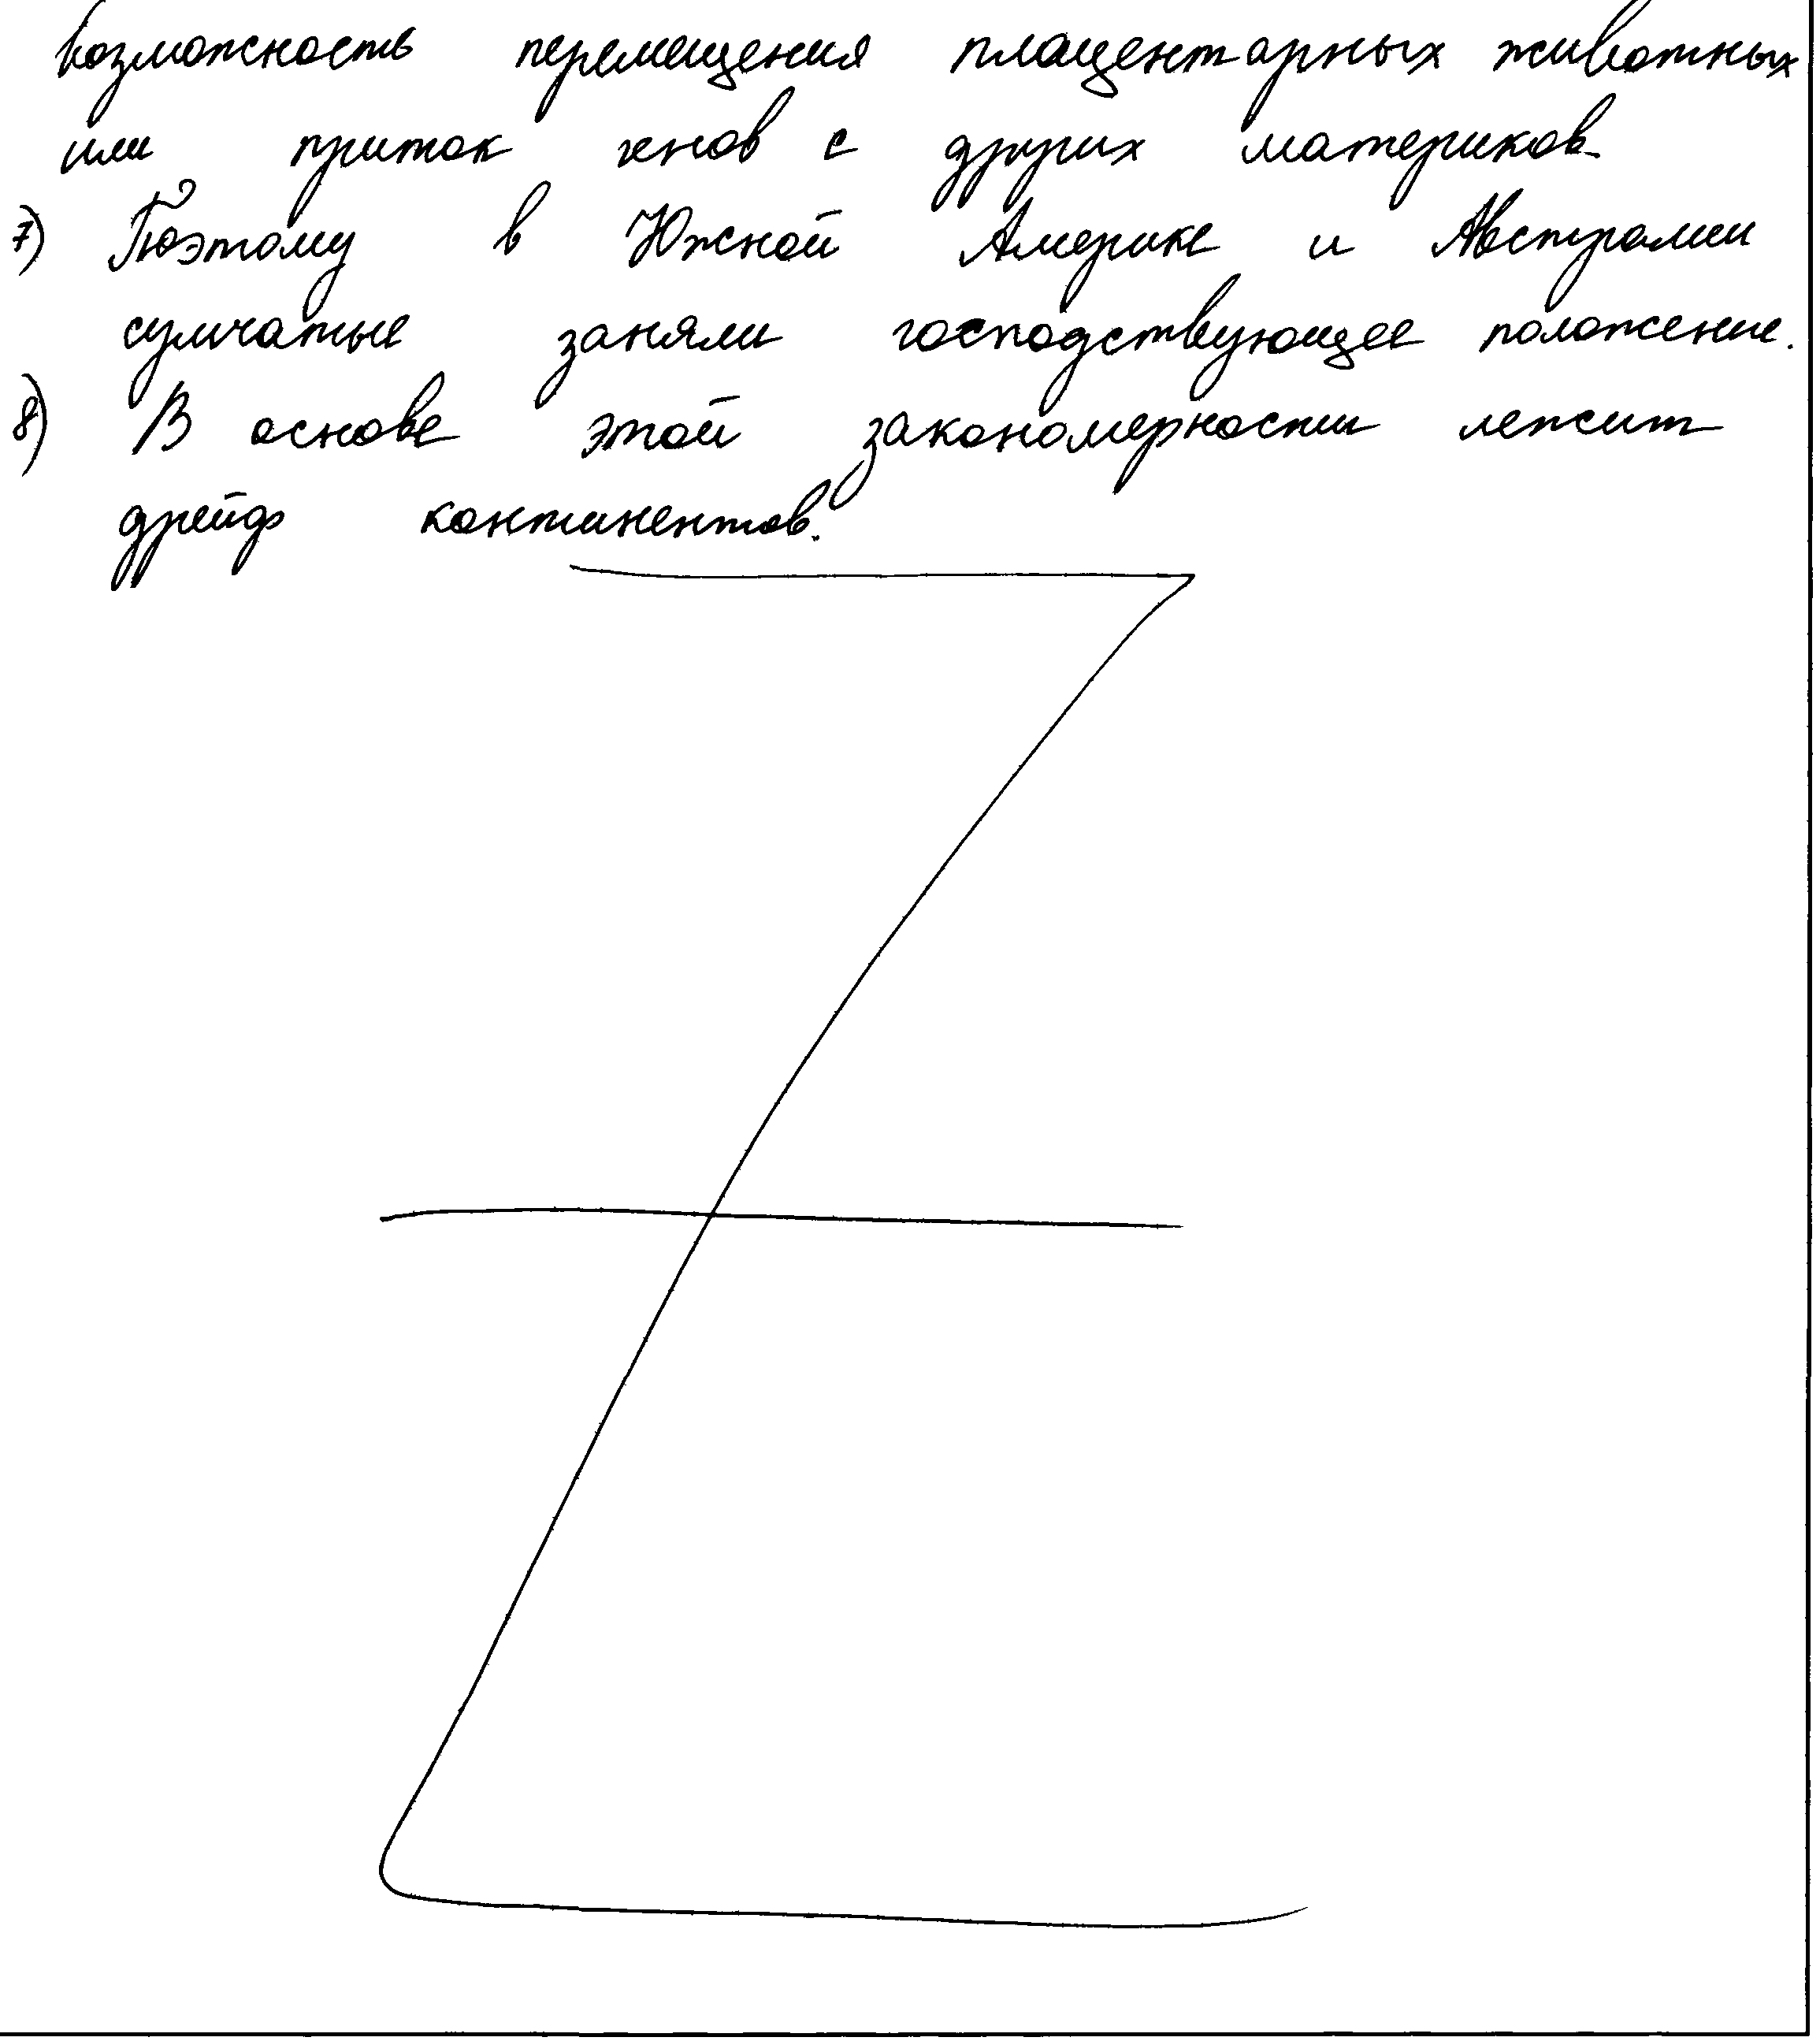 возможность перемещения плацентарных животных
или приток генов с других материков.
7) Поэтому в Южной Америке и Австралии
сумчатые заняли господствующее положение.
8) В основе этой закономерности лежит
дрейф континентов.